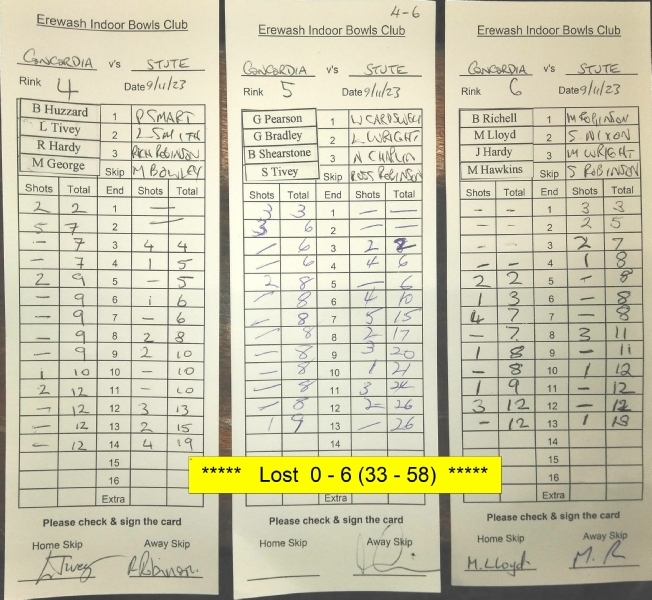 Erewash Indoor Bowls Club
CONCORDIA v's STUTE
Rink 4 Date 9/11/23
B Huzzard 1 P SMART
L Tivey 2 L SMITH
R Hardy 3 RICH ROBINSON
M George Skip M BOWLEY
Shots Total End Shots Total
2 2 1 —
5 7 2 —
– 7 3 4 4
– 7 4 1 5
2 9 5 – 5
– 9 6 1 6
– 9 7 – 6
– 9 8 2 8
– 9 9 2 10
1 10 10 – 10
2 12 11 – 10
– 12 12 3 13
– 12 13 2 15
– 12 14 4 19
15
16
Extra
Please check & sign the card
Home Skip Away Skip
L Tivey R Robinson.
4-6
Erewash Indoor Bowls Club
CONCORDIA v's STUTE
Rink 5 Date 9/11/23
G Pearson 1
G Bradley 2 L WRIGHT
B Shearstone 3 N
S Tivey Skip RUSS ROBINSON
Shots Total End Shots Total
3 3 1 — —
3 6 2 — —
– 6 3 2 2
– 6 4 4 6
2 8 5 — 6
– 8 6 4 10
– 8 7 5 15
– 8 8 2 17
– 8 9 3 20
– 8 10 1 21
– 8 11 3 24
– 8 12 2 26
1 9 13 — 26
14
Extra
Please check & sign the card
Home Skip Away Skip
Erewash Indoor Bowls Club
CONCORDIA v's STUTE
Rink 6 Date 9/11/23
B Richell 1 M ROBINSON
M Lloyd 2 S NIXON
J Hardy 3 M WRIGHT
M Hawkins Skip S ROBINSON
Shots Total End Shots Total
– – 1 3 3
– – 2 2 5
– – 3 2 7
– – 4 1 8
2 2 5 – 8
1 3 6 – 8
4 7 7 – 8
– 7 8 3 11
1 8 9 – 11
– 8 10 1 12
1 9 11 – 12
3 12 12 – 12
– 12 13 1 13
14
15
16
Extra
Please check & sign the card
Home Skip Away Skip
M. Lloyd. M. R
***** Lost 0 - 6 (33 - 58) *****